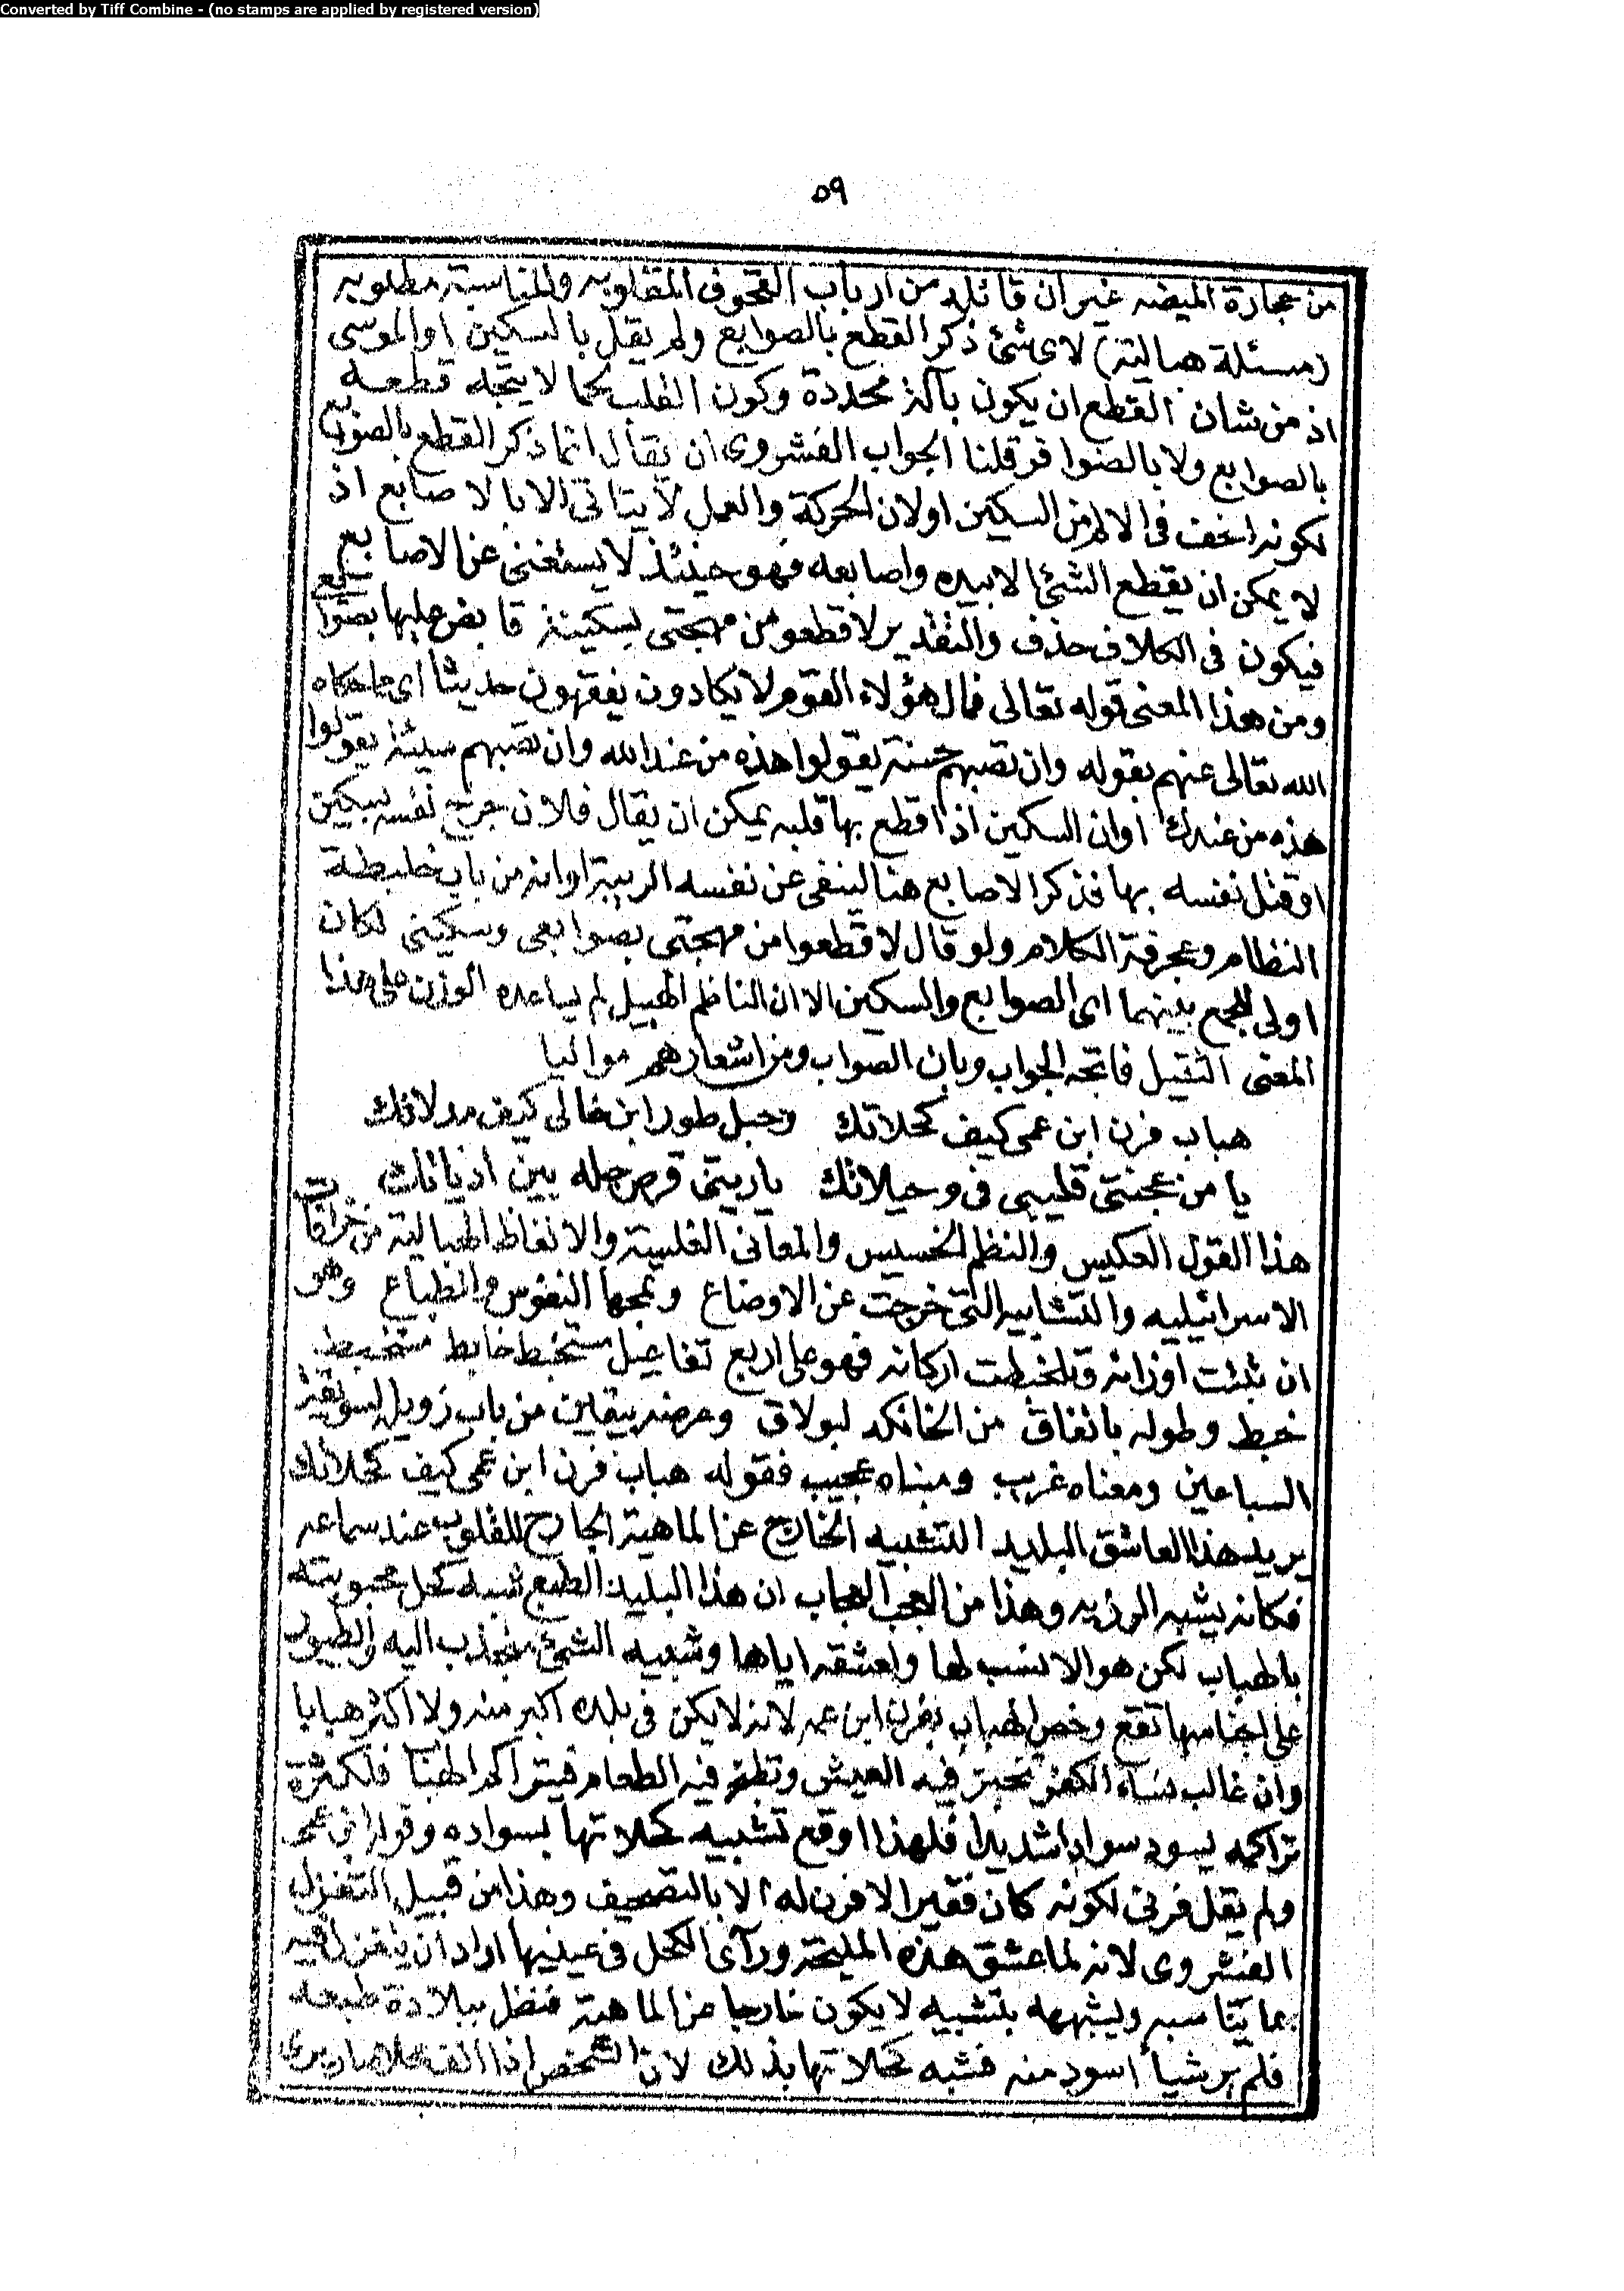 Converted by Tiff Combine - (no stamps are applied by registered version)
٥٩
من عجارة الميضه غير ان قائله من ارباب القحوف المقلوبه والمناسبة مطلوبه
(مسئلة هبالية) لاى شئ ذكر القطع بالصوابع ولم يقل بالسكين او الموسى
اذ من شان القطع ان يكون بآلة محددة وكون القلب لحما لا يتجه قطعه
بالصوابع ولا بالصوا قلنا الجواب الفشروى ان يقال انما ذكر القطع بالصوابع
لكونه اخف فى الالم من السكين او لان الحركة والعمل لا يتاتى الا بالاصابع اذ
لا يمكن ان يقطع الشئ الا بيده واصابعه فهو حينئذ لا يستغنى عن الاصابع
فيكون فى الكلام حذف والتقدير لاقطعو من مهجتى بسكينة قابض عليها بصوابعى
ومن هذا المعنى قوله تعالى فمال هؤلاء القوم لا يكادون يفقهون حديثا اى ما حكاه
الله تعالى عنهم بقوله وان تصبهم حسنة يقولوا هذه من عند الله وان تصبهم سيئة يقولوا
هذه من عندك او ان السكين اذا قطع بها قلبه يمكن ان يقال فلان جرح نفسه بسكين
او قتل نفسه بها فذكر الاصابع هنا لينفى عن نفسه الريبة او انه من باب خلبطة
النظام وعجرفة الكلام ولو قال لاقطعوا من مهجتى بصوابعى وسكينى لكان
اولى للجمع بينهما اى الصوابع والسكين الا ان الناظم الهبيل لم يساعده الوزن على هذا
المعنى الثقيل فاتجه الجواب وبان الصواب ومن اشعارهم مواليا
هباب فرن ابن عمى كيف كحلاتك وحبل طور ابن خالى كيف مدلاتك
يا من عجنتى قليبى فى وحيلاتك ياريتنى قرص جله بين اذياتك
هذا القول العكيس والنظم الخسيس والمعانى القلبية والالفاظ الهبالية من خرافات
الاسرائيليه والتشابيه التى خرجت عن الاوضاع وتمجها النفوس والطباع وهو
ان ثبتت اوزانه وتلخبطت اركانه فهو على اربع تفاعيل مستخبط خابط متخبط
خبط وطوله باتفاق من الخانكه لبولاق وعرضه بيقين من باب زويله لسويقة
السباعين ومعناه غريب ومبناه عجيب فقوله هباب فرن ابن عمى كيف كحلاتك
يريد هذا العاشق البليد التشبيه الخارج عن الماهية الجارح للقلوب عند سماعه
فكانه يشبه الرزيه وهذا من العجب العجاب ان هذا البليد الطبع شبه كحل محبوبته
بالهباب لكن هو الانسب لها ولعشقه اياها وشبيه الشئ منجذب اليه والطيور
على اجناسها تقع وخص الهباب بفرن ابن عمه لانه لا يكن فى بلده اكبر منه ولا اكثر هبابا
وان غالب نساء الكفر تخبز فيه العيش وتطبخ فيه الطعام فيتراكم الهباب فلكثرة
تراكمه يسود سوادا شديدا فلهذا اوقع تشبيه كحلاتها بسواده وقوله ابن عمى
ولم يقل فرنى لكونه كان فقيرا لا فرن له الا بالتصحيف وهذا من قبيل التغزل
الفشروى لانه لما عشق هذه المليحة ورآى الكحل فى عينيها اراد ان يتغزل فيه
بما يناسبه ويشبهه بتشبيه لا يكون خارجا عن الماهية فنظر ببلادة طبعه
فلم ير شيا اسود منه فشبه كحلاتها بذلك لان الشخص اذا الف محلا صار يرى